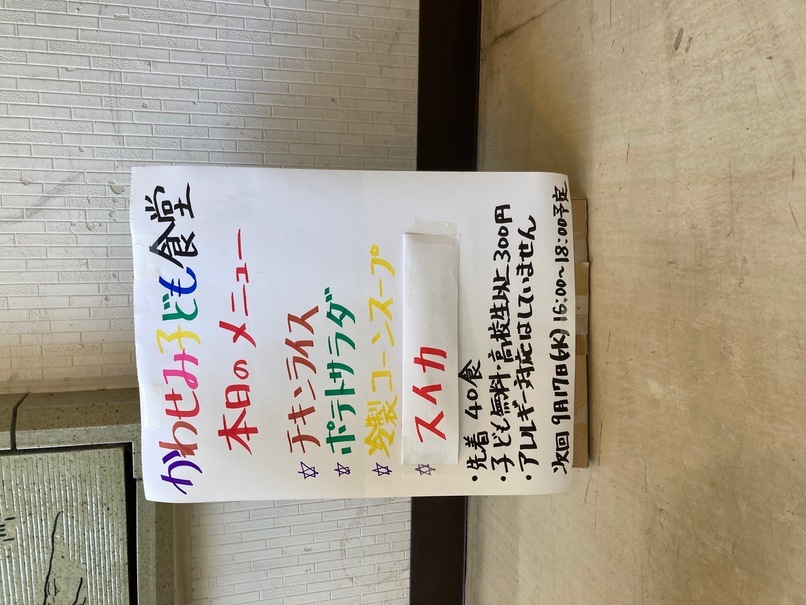 かわせみ子ども食堂
本日のメニュー
☆チキンライス
☆ポテトサラダ
☆冷製コーンスープ
☆スイカ
・先着 40食
・子ども無料・高校生以上300円
・アレルギー対応はしていません
次回9月17日(水) 16:00~18:00予定